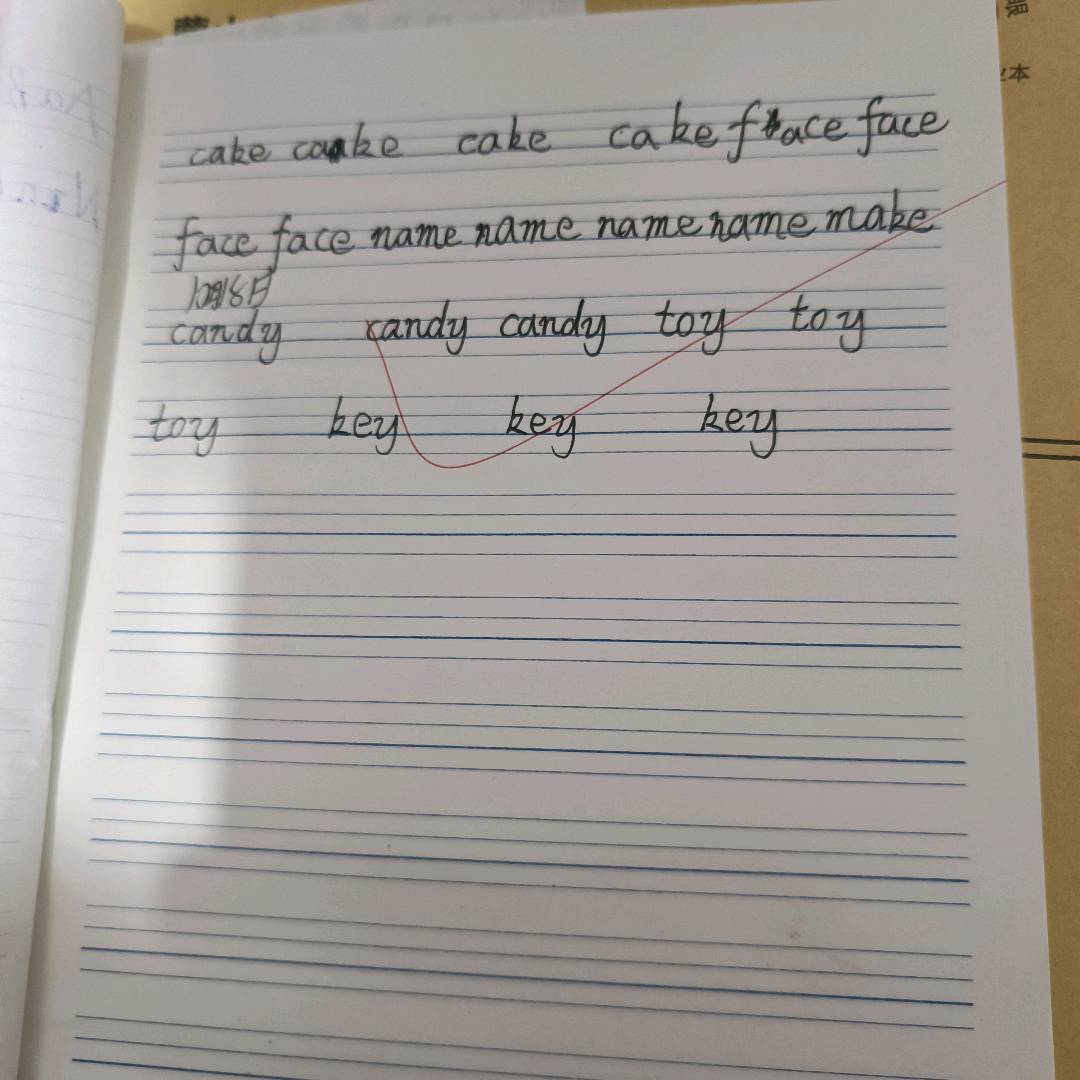 cake cake cake cake face face
face face name name name name make
candy candy candy toy toy
toy key key key